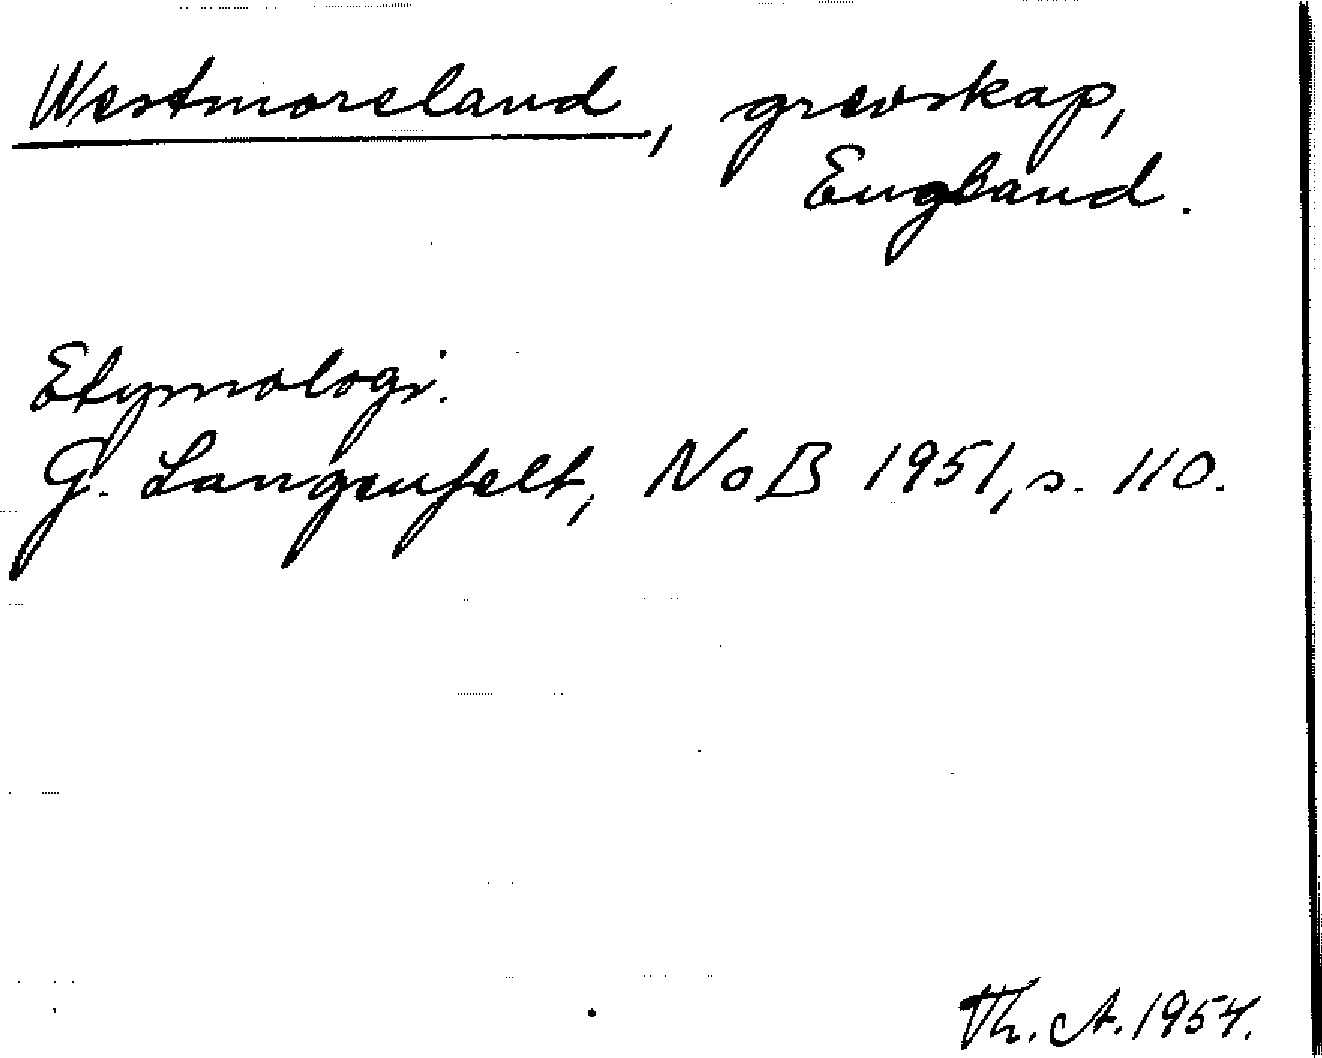 Westmoreland, grevskap,
England.
Etymologi.
G. Langenfelt, NoB 1951, s. 110.
Th. A. 1954.